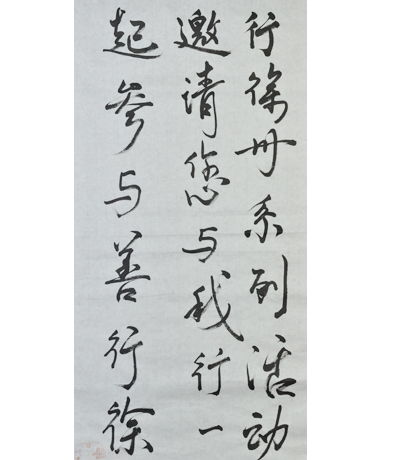 行徐州系列活动
邀请您与我行一
起参与善行徐